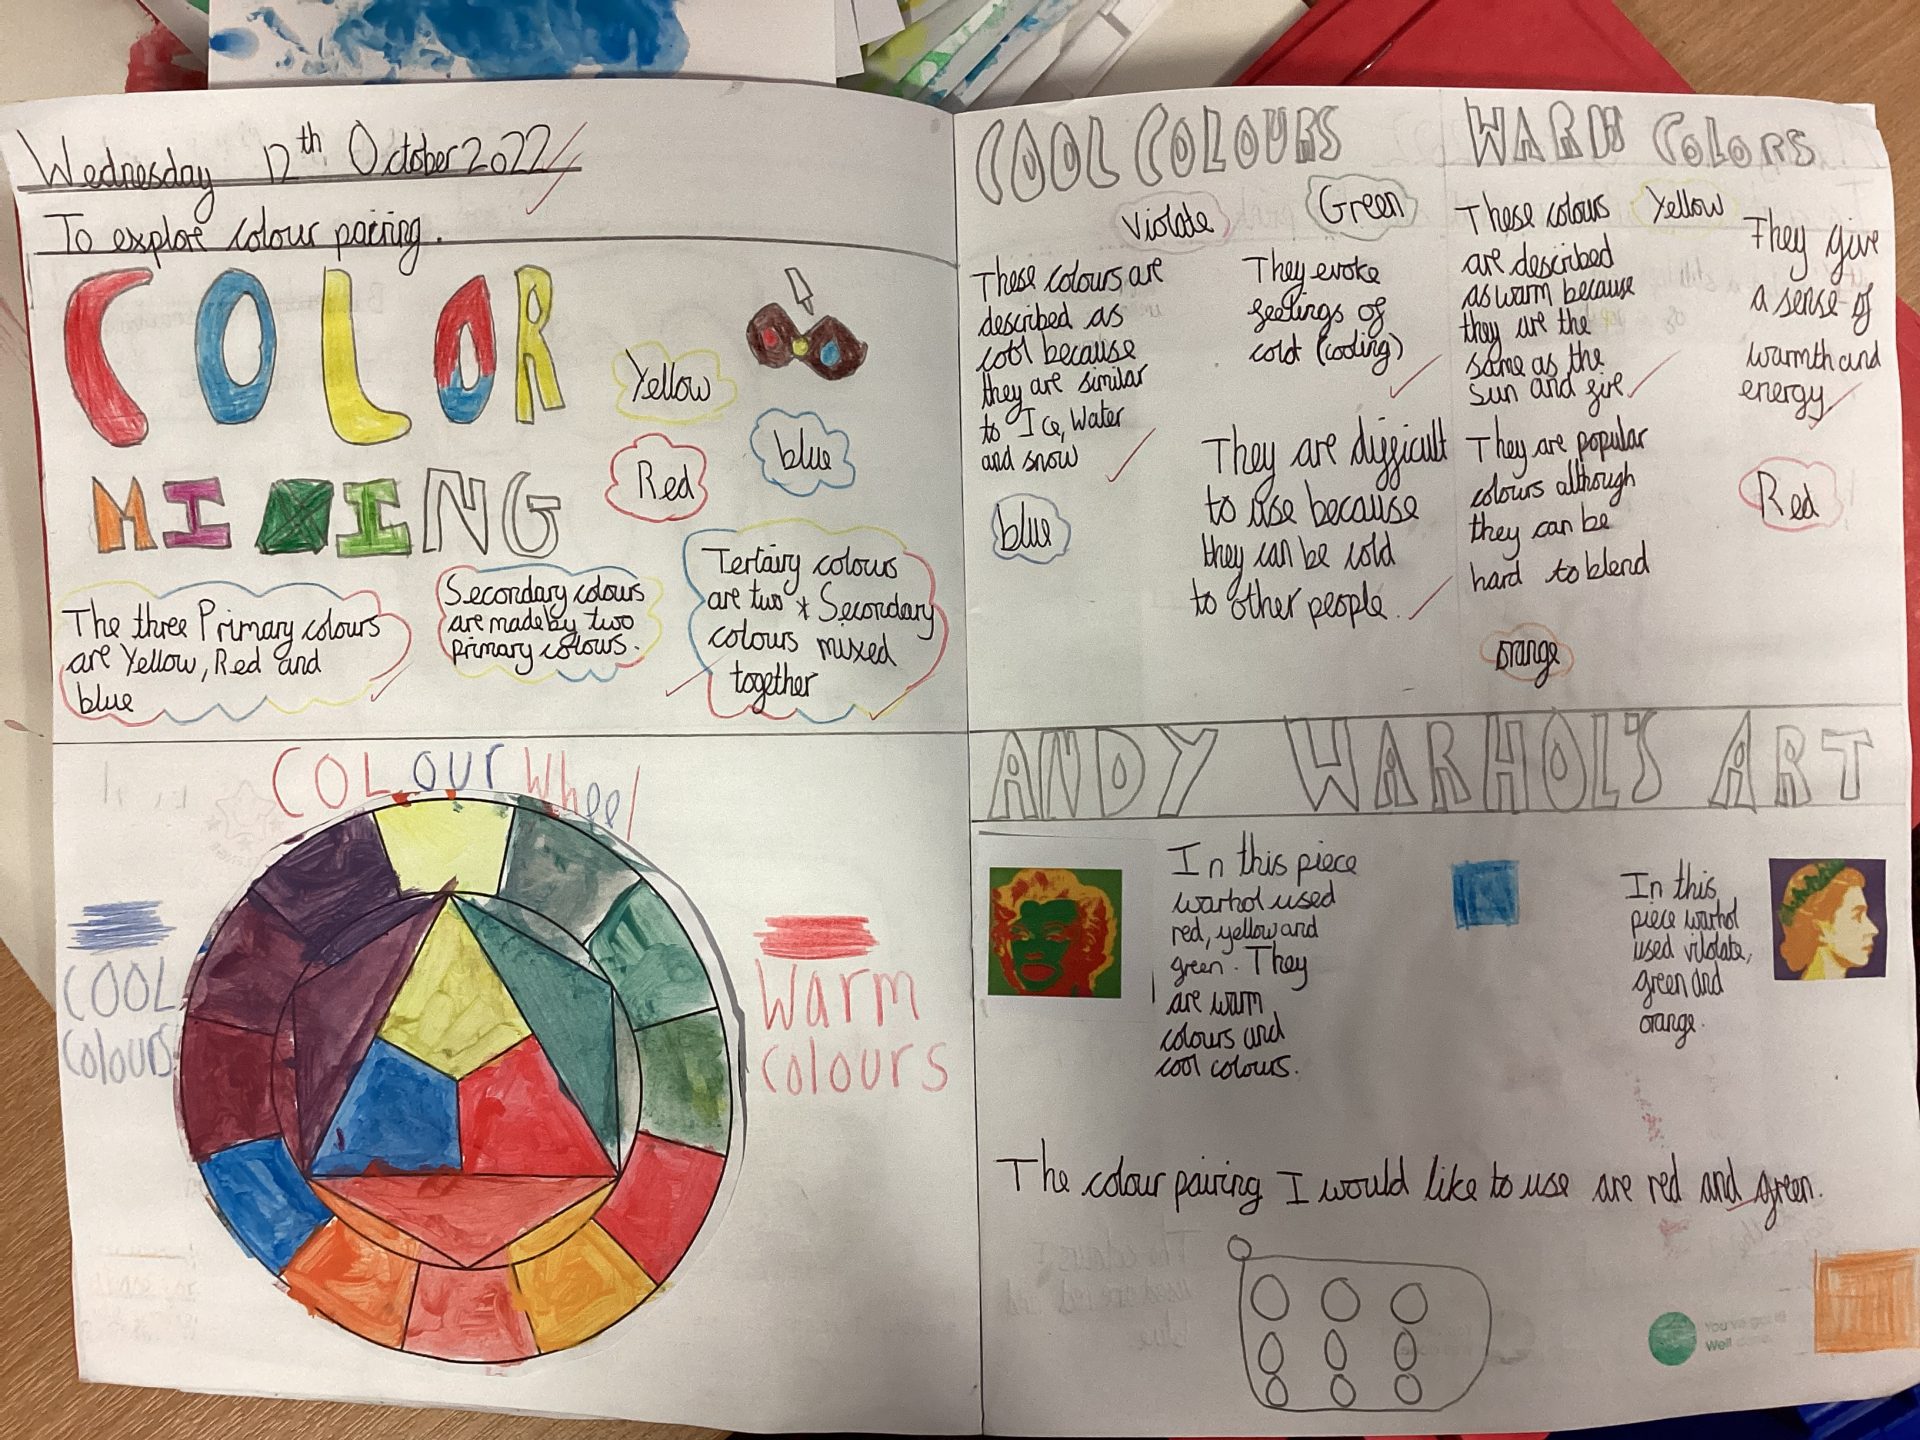 Wednesday 12th October 2022
To explore colour pairing.
COLOR
MIXING
Yellow
Red
blue
The three Primary colours
are Yellow, Red and
blue
Secondary colours
are made by two
primary colours.
Tertairy colours
are two * Secondary
colours mixed
together
COLOUR Wheel
COOL
Colours
Warm
colours
COOL COLOURS
Violate
Green
These colours are
described as
cool because
they are similar
to Ice, Water
and snow
They evoke
feelings of
cold (cooling)
blue
They are difficult
to use because
they can be cold
to other people.
WARM COLORS
These colours
are described
as warm because
they are the
same as the
Sun and fire
Yellow
They give
a sense of
warmth and
energy
They are popular
colours although
they can be
hard to blend
Red
orange
ANDY WARHOL'S ART
In this piece
warhol used
red, yellow and
green. They
are warm
colours and
cool colours.
In this
piece warhol
used vilolate,
green and
orange.
The colour pairing I would like to use are red and green.
Well